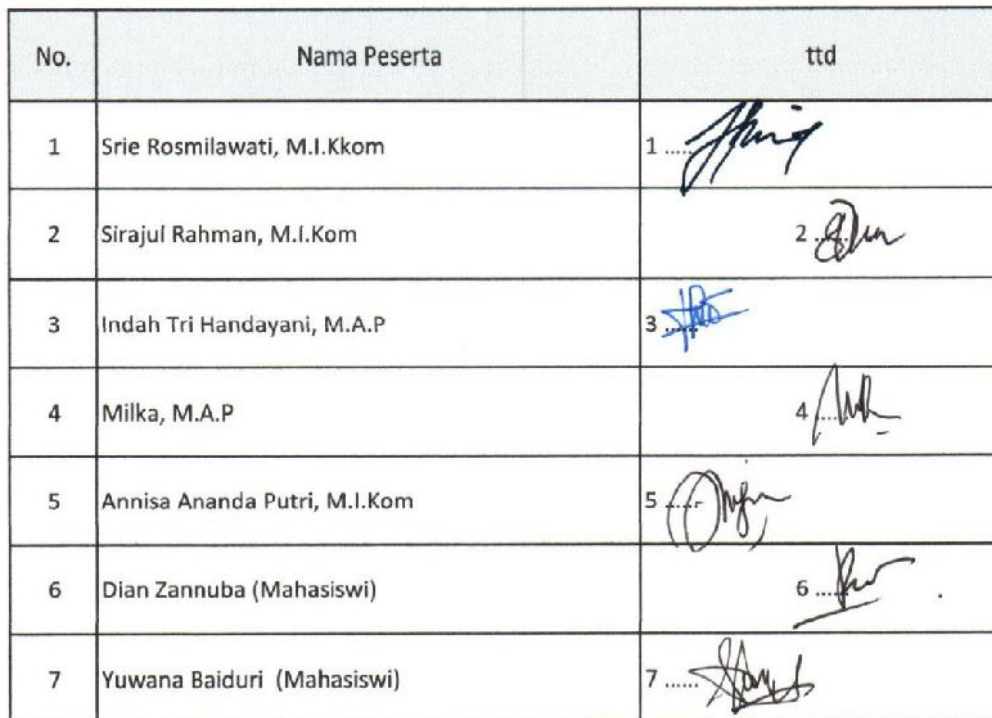 No. Nama Peserta ttd
1 Srie Rosmilawati, M.I.Kkom 1 .....
2 Sirajul Rahman, M.I.Kom 2 .....
3 Indah Tri Handayani, M.A.P 3 .....
4 Milka, M.A.P 4 .....
5 Annisa Ananda Putri, M.I.Kom 5 .....
6 Dian Zannuba (Mahasiswi) 6 .....
7 Yuwana Baiduri (Mahasiswi) 7 ......